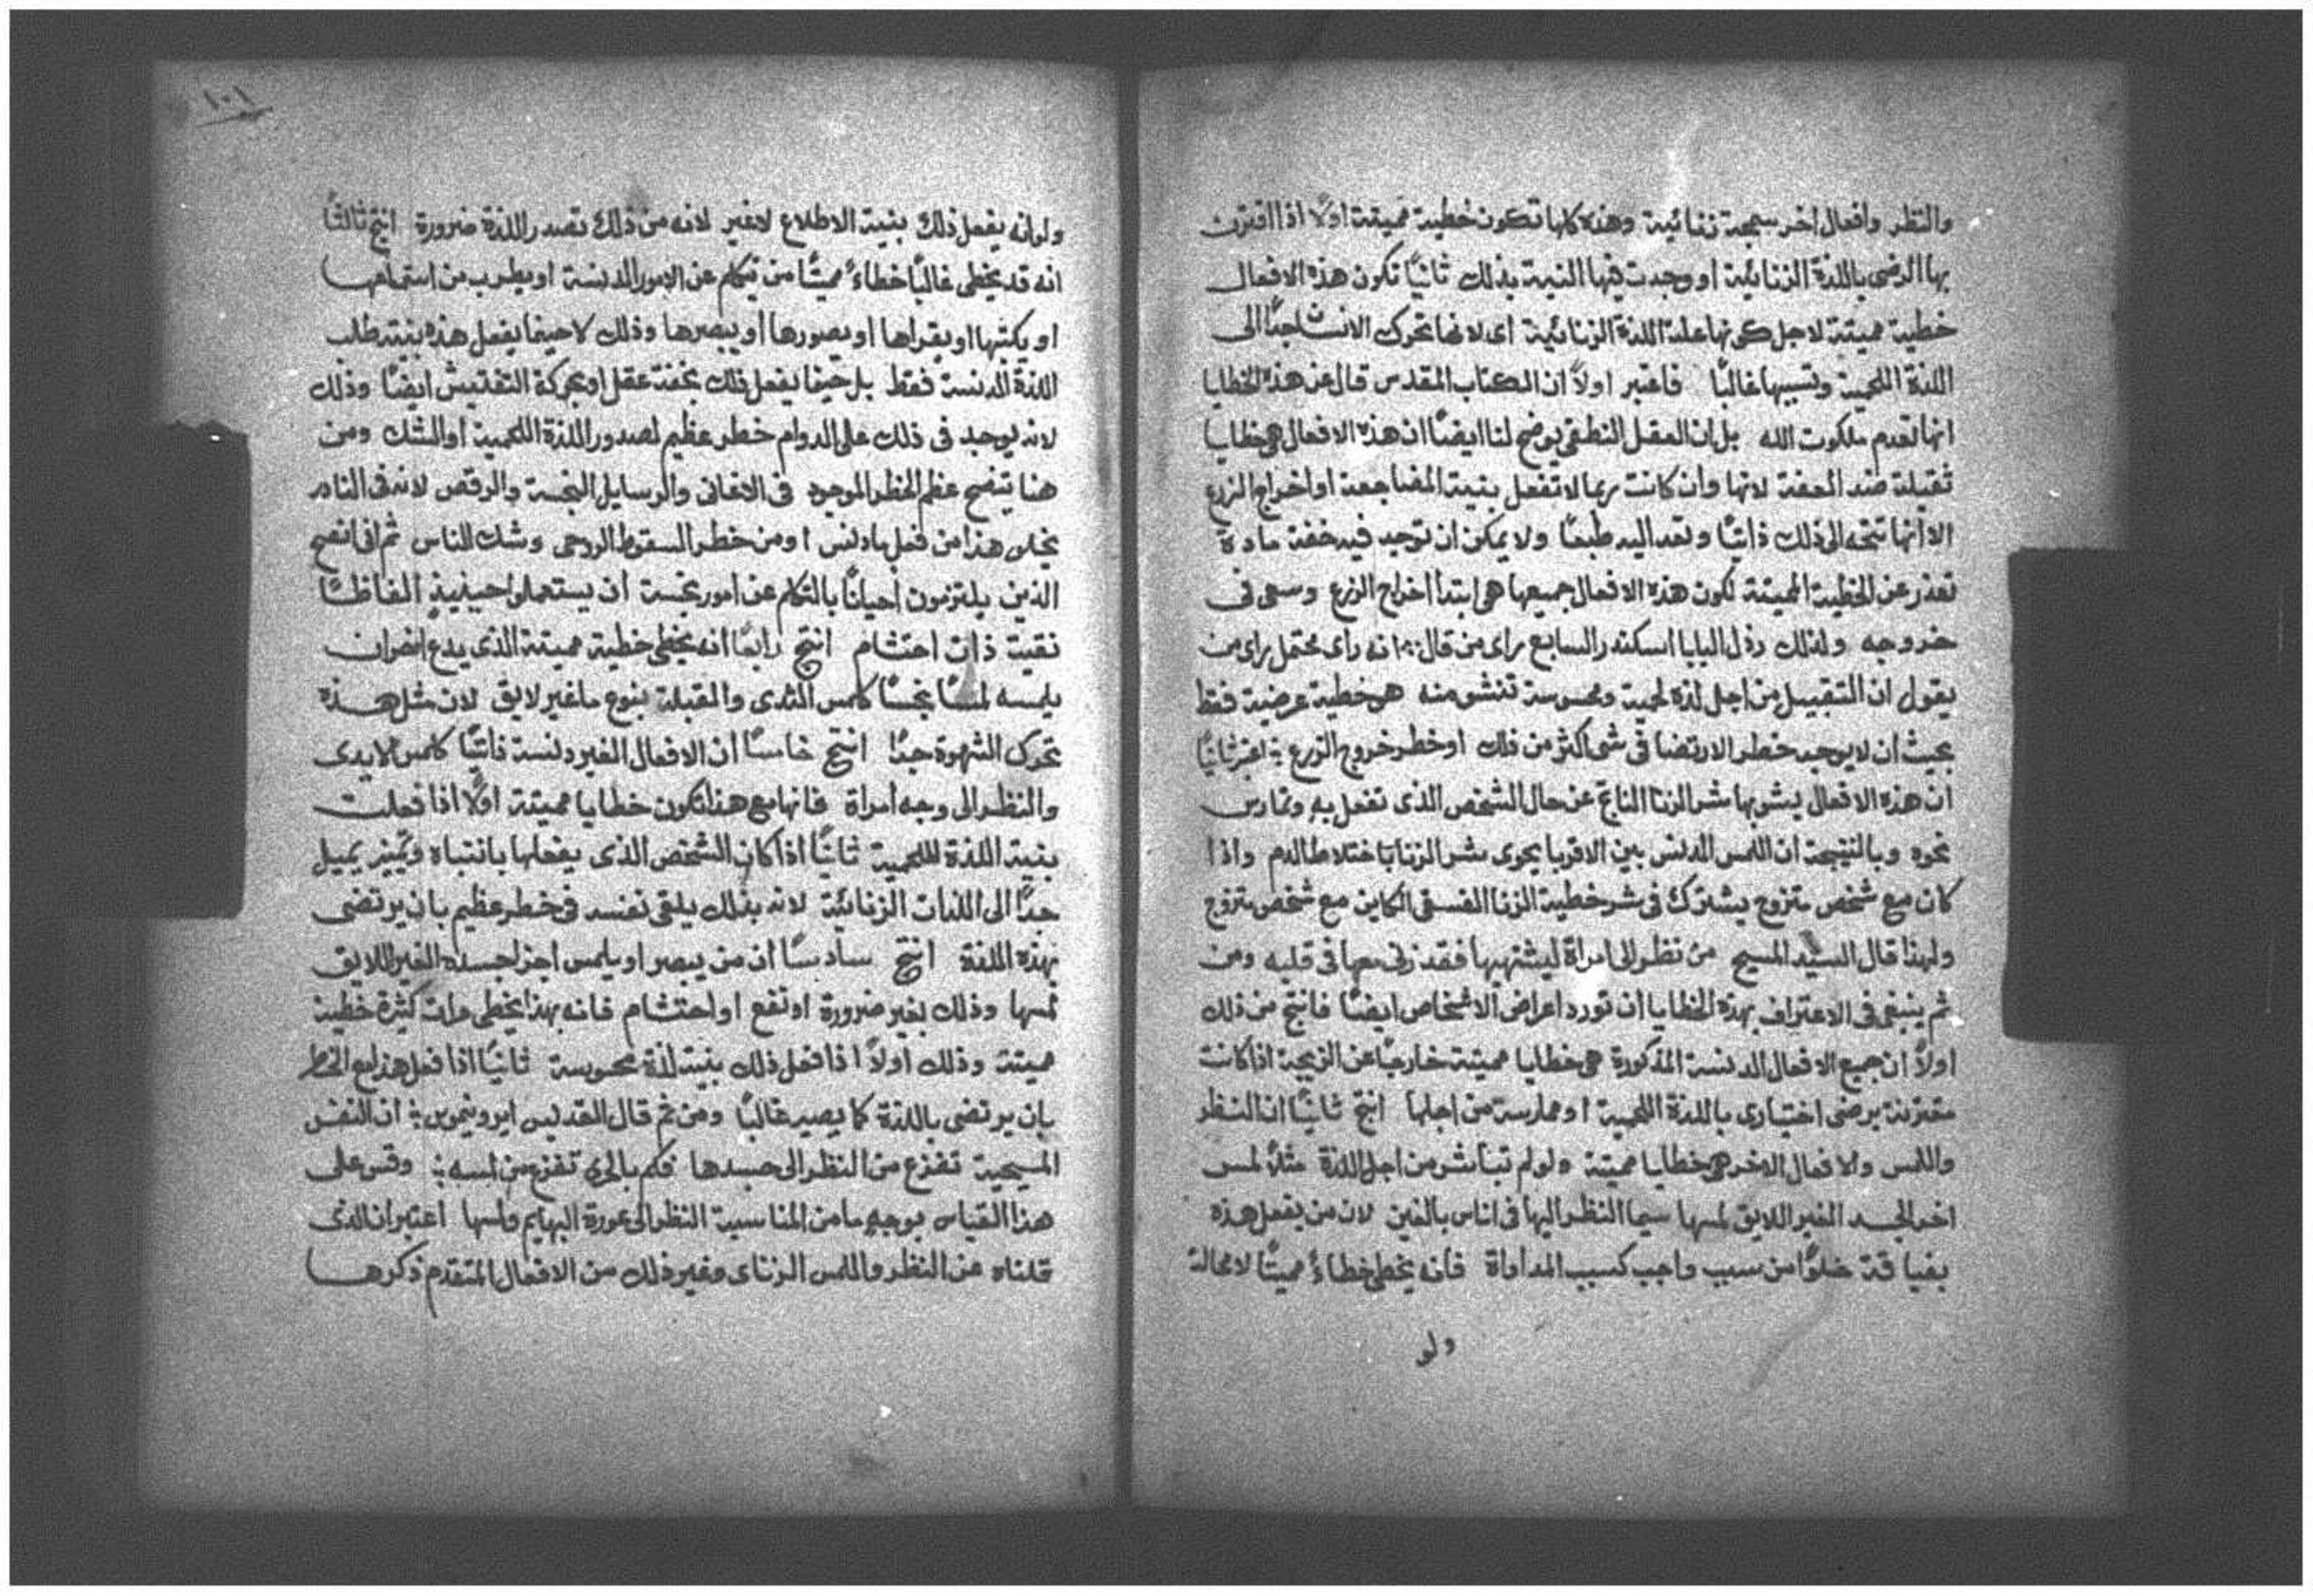 والنظر وافعال اخر سمجة زنائية وهذه كلها تكون خطية مميتة اولاً اذا اقترن
بها الرضى باللذة الزنائية او وجدت فيها النية بذلك ثانيًا تكون هذه الافعال
خطية مميتة لاجل كونها علة اللذة الزنائية اى لانها تحرك الانسان جدًا الى
اللذة اللحمية وتسببها غالبًا فاعتبر اولاً ان الكتاب المقدس قال عن هذه الخطايا
انها تعدم ملكوت الله بل ان العقل النطقى يوضح لنا ايضًا ان هذه الافعال هى خطايا
ثقيلة ضد العفة لانها وان كانت ربما لا تفعل بنية المضاجعة او اخراج الزرع
الا انها تتجه الى ذلك ذاتيًا وتعد اليه طبعًا ولا يمكن ان توجد فيه خفة مادة
تعذر عن الخطية المميتة لكون هذه الافعال جميعها هى ابتدا اخراج الزرع وسعى فى
خروجه ولذلك رذل البابا اسكندر السابع راى من قال انه راى محتمل راى من
يقول ان التقبيل من اجل لذة لحمية ومحسوسة تنشو منه هو خطية عرضية فقط
بحيث ان لا يوجد خطر الارتضا فى شى اكثر من ذلك او خطر خروج الزرع اعتبر ثانيًا
ان هذه الافعال يشوبها شر الزنا الناتج عن حال الشخص الذى تفعل به وتمارس
نحوه وبالنتيجة ان اللمس الدنس بين الاقربا يحوى شر الزنا باختلاط الدم واذا
كان مع شخص متزوج يشترك فى شر خطية الزنا الفسقى الكاين مع شخص متزوج
ولهذا قال السيد المسيح من نظر الى امراة ليشتهيها فقد زنى معها فى قلبه ومن
ثم ينبغى فى الاعتراف بهذه الخطايا ان تورد اعراض الاشخاص ايضًا فانتج من ذلك
اولاً ان جميع الافعال الدنسة المذكورة هى خطايا مميتة خارجًا عن الزيجة اذا كانت
مقترنة برضى اختيارى باللذة اللحمية او ممارسة من اجلها انتج ثانيًا ان النظر
واللمس والافعال الاخر هى خطايا مميتة ولو لم تباشر من اجل اللذة مثلاً لمس
اخر الجسد الغير اللايق لمسها سيما النظر اليها فى اناس بالغين لان من يفعل هذه
خلوًا من سبب واجب كسبب المداواة فانه يخطى خطاءً مميتًا لا محالة
ولو
١٠١
ولو انه يفعل ذلك بنية الاطلاع لا غير لانه من ذلك تصدر اللذة ضرورة انتج ثالثًا
انه قد يخطى غالبًا خطاءً مميتًا من تيكلم عن الامور الدنسة او يطرب من استماعها
او يكتبها او يقراها او يصورها او يبصرها وذلك لا حينما يفعل هذه بنية طلب
اللذة الدنسة فقط بل حينما يفعل ذلك بخفة عقل او بحركة التفتيش ايضًا وذلك
لانه يوجد فى ذلك على الدوام خطر عظيم لصدور اللذة اللحمية او الشك ومن
هنا يتضح عظم الخطر الموجود فى الاغانى والرسايل النجسة والرقص لانه فى النادر
يخلو هذا من فعل ما دنس او من خطر السقوط الروحى وشك الناس ثم انى انصح
الذين يلتزمون احيانًا بالتكلم عن امور نجسة ان يستعملوا حينيذٍ الفاظًا
نقية ذات احتشام انتج رابعًا انه يخطى خطية مميتة الذى يدع اخر ان
يلمسه لمسًا نجسًا كلمس الثدى والقبلة بنوع ما غير لايق لان مثل هذه
تحرك الشهوة جدًا انتج خامسًا ان الافعال الغير دنسة ذاتيًا كلمس الايدى
والنظر الى وجه امراة فانها مع هذا تكون خطايا مميتة اولاً اذا فعلت
بنية اللذة اللحمية ثانيًا اذا كان الشخص الذى يفعلها بانتباه وتمييز يميل
جدًا الى اللذات الزنائية لانه بذلك يلقى نفسه فى خطر عظيم بان يرتضى
بهذه اللذة انتج سادسًا ان من يبصر او يلمس اجزا جسده الغير اللايق
لمسها وذلك بغير ضرورة او نفع او احتشام فانه بهذا يخطى مرات كثيرة خطية
مميتة وذلك اولاً اذا فعل ذلك بنية لذة محسوسة ثانيًا اذا فعل هذا مع الخطر
بان يرتضى باللذة كما يصير غالبًا ومن ثم قال القديس ايرونيموس ان النفس
المسيحية تفزع من النظر الى جسدها فكم بالحرى تفزع من لمسه وقس على
هذا القياس بوجهٍ ما من المناسبة النظر الى عورة البهايم ولمسها اعتبر ان الذى
قلناه عن النظر واللمس الزناى وغير ذلك من الافعال المتقدم ذكرها